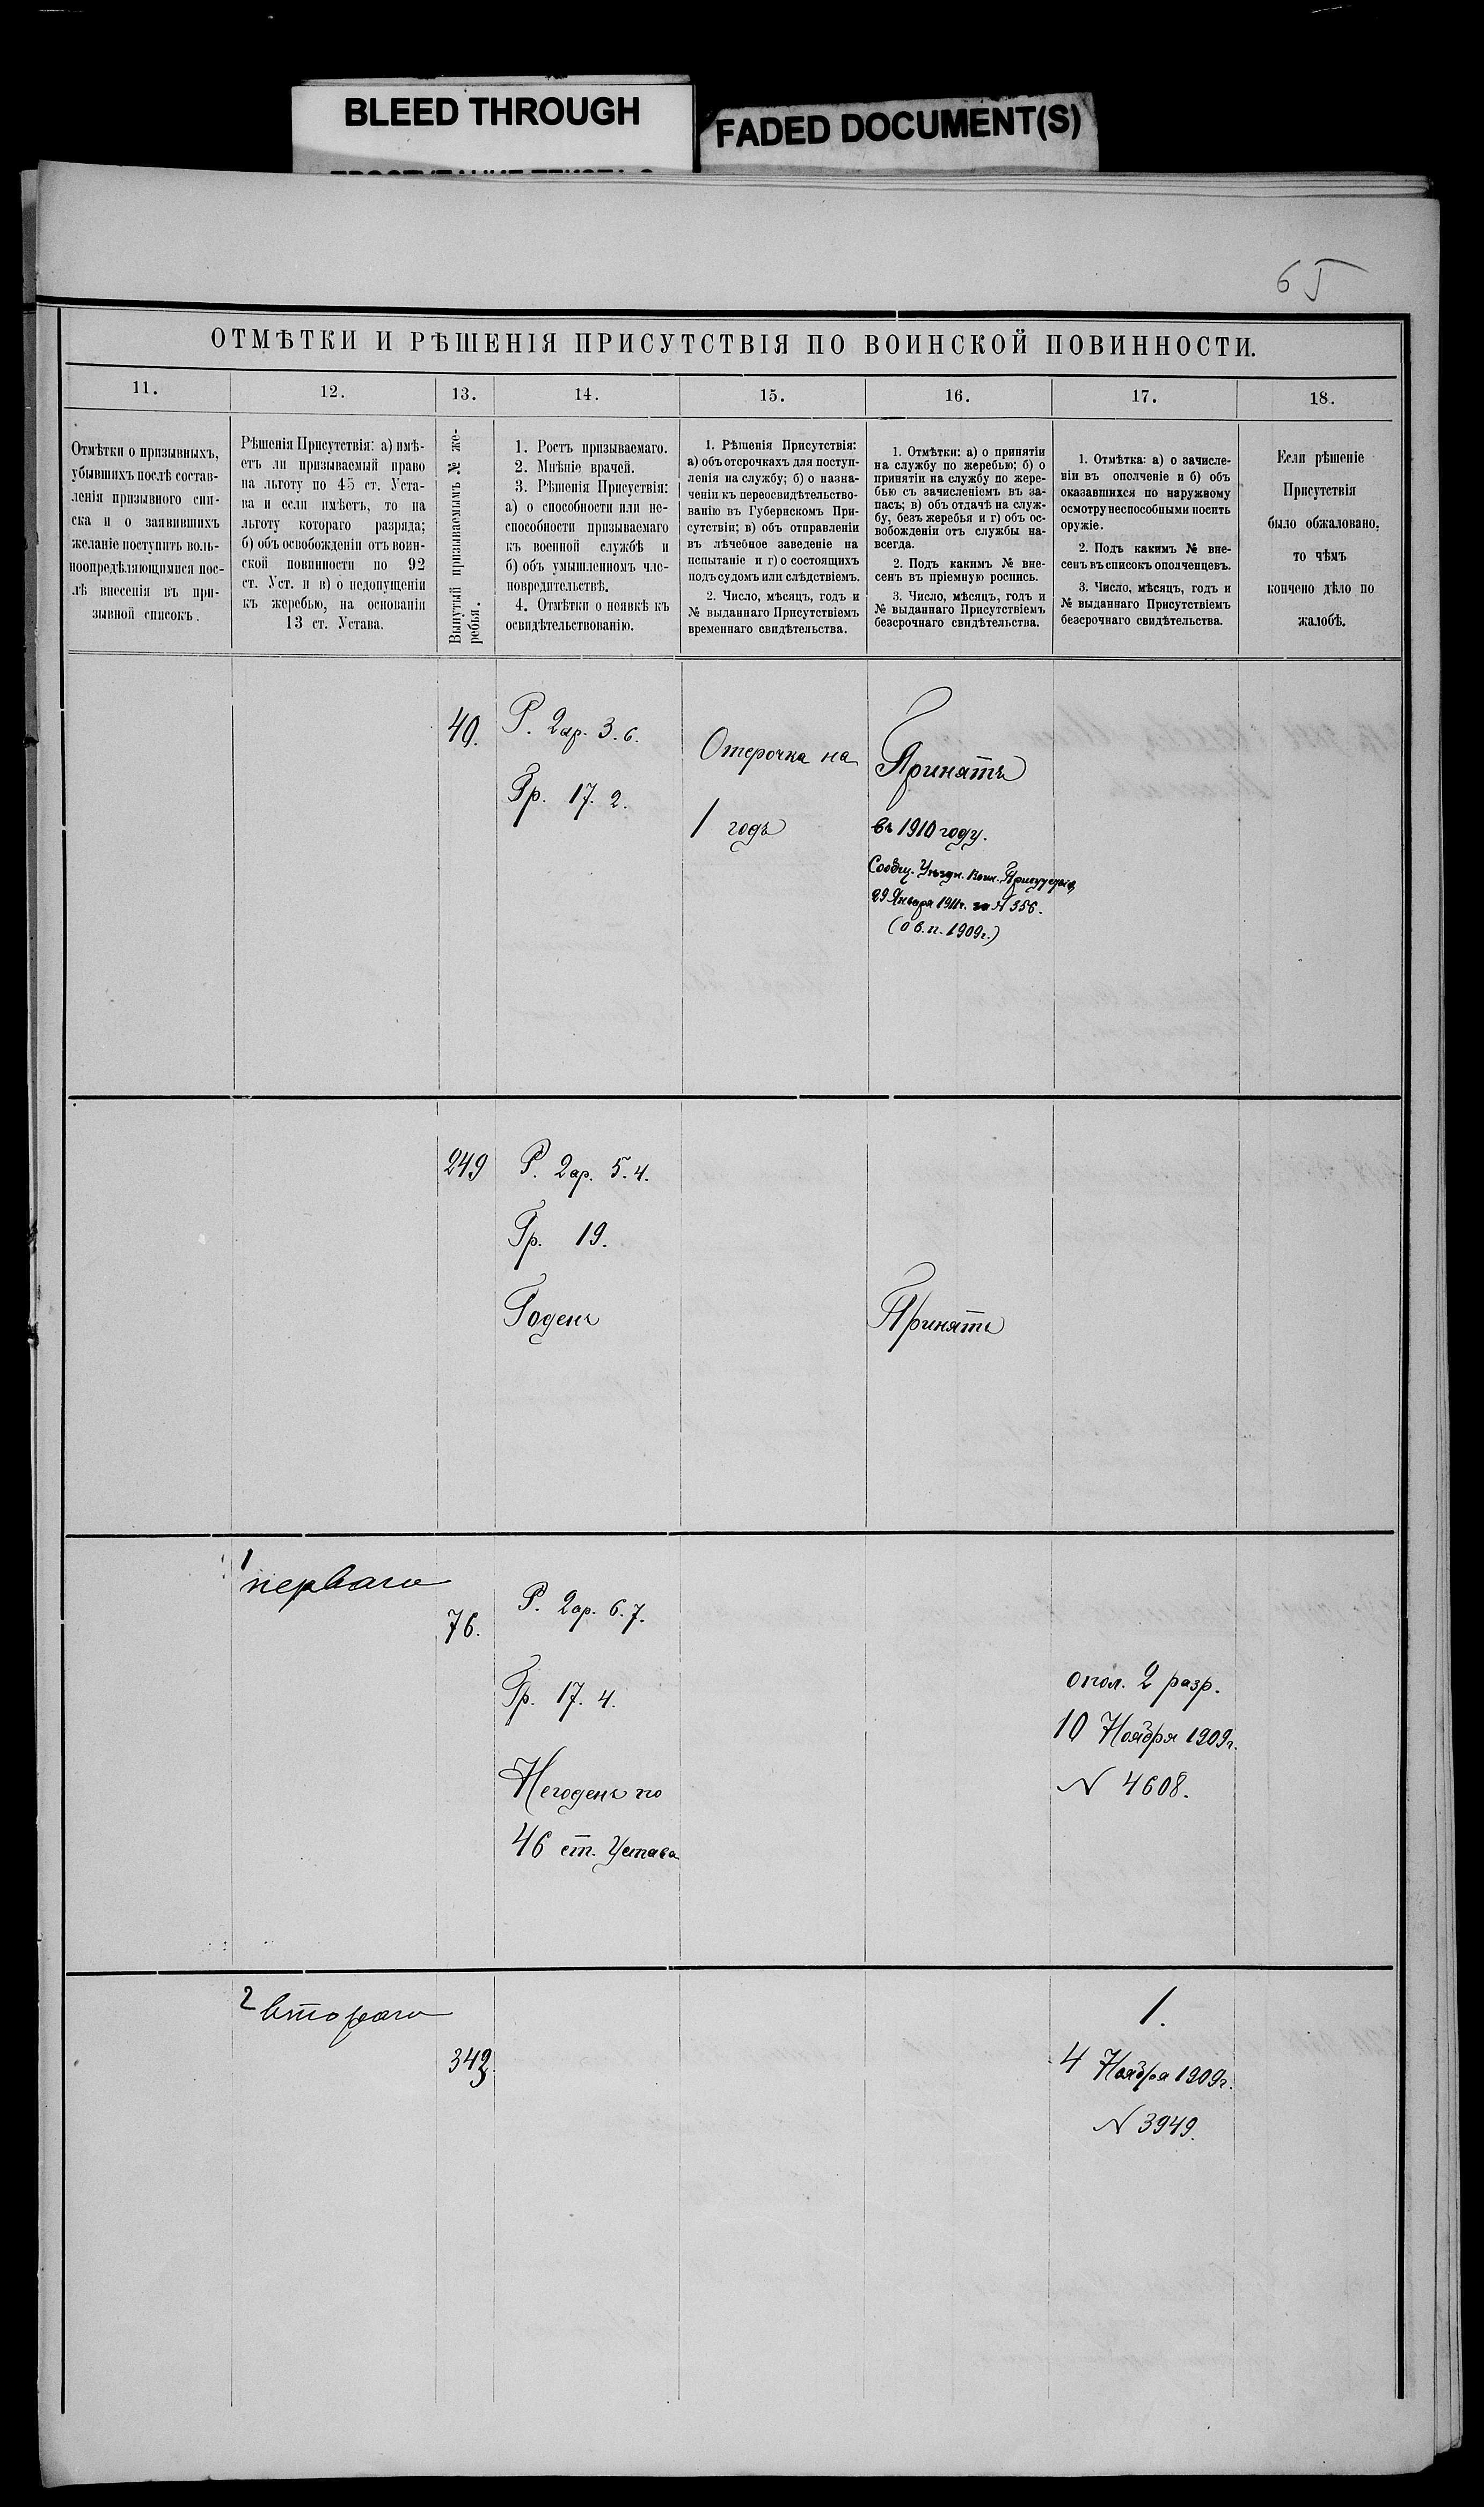 BLEED THROUGH
FADED DOCUMENT(S)
65
ОТМѢТКИ И РѢШЕНІЯ ПРИСУТСТВІЯ ПО ВОИНСКОЙ ПОВИННОСТИ.
11.
12.
13.
14.
15.
16.
17.
18.
Отмѣтки о призывныхъ,
убывшихъ послѣ состав-
ленія призывного спи-
ска и о заявившихъ
желаніе поступить воль-
ноопредѣляющимися пос-
лѣ внесенія въ при-
зывной списокъ.
Рѣшенія Присутствія: а) имѣ-
етъ ли призываемый право
на льготу по 45 ст. Уста-
ва и если имѣетъ, то на
льготу котораго разряда;
б) объ освобожденіи отъ воин-
ской повинности по 92
ст. Уст. и в) о недопущеніи
къ жеребью, на основаніи
13 ст. Устава.
Вынутый призываемымъ № же-
ребья.
1. Ростъ призываемаго.
2. Мнѣніе врачей.
3. Рѣшенія Присуствія:
а) о способности или не-
способности призываемаго
къ военной службѣ и
б) объ умышленномъ чле-
новредительствѣ.
4. Отмѣтки о неявкѣ къ
освидѣтельствованію.
1. Рѣшенія Присутствія:
а) объ отсрочкахъ для поступ-
ленія на службу; б) о назна-
ченіи къ переосвидѣтельство-
ванію въ Губернскомъ При-
сутствіи; в) объ отправленіи
въ лѣчебное заведеніе на
испытаніе и г) о состоящихъ
подъ судомъ или слѣдствіемъ.
2. Число, мѣсяцъ, годъ и
№ выданнаго Присутствіемъ
временнаго свидѣтельства.
1. Отмѣтки: а) о принятіи
на службу по жеребью; б) о
принятіи на службу по жере-
бью съ зачисленіемъ въ за-
пасъ; в) объ отдачѣ на служ-
бу, безъ жеребья и г) объ ос-
вобожденіи отъ службы на-
всегда.
2. Подъ какимъ № вне-
сенъ въ пріемную роспись.
3. Число, мѣсяцъ, годъ и
№ выданнаго Присутствіемъ
безсрочнаго свидѣтельства.
1. Отмѣтка: а) о зачисле-
ніи въ ополченіе и б) объ
оказавшихся по наружному
осмотру неспособными носить
оружіе.
2. Подъ какимъ № вне-
сенъ въ списокъ ополченцевъ.
3. Число, мѣсяцъ, годъ и
№ выданнаго Присутствіемъ
безсрочнаго свидѣтельства.
Если рѣшеніе
Присутствія
было обжаловано,
то чѣмъ
кончено дѣло по
жалобѣ.
49.
Р. 2ар. 3. 6.
Гр. 17. 2.
Отсрочка на
1 годъ
Принятъ
въ 1910 году.
Сообщ. Уѣздн. Воин. Присутствія
29 Января 1911г. за N 356.
(о в. п. 1909г.)
249
Р. 2ар. 5. 4.
Гр. 19.
Годенъ
Принятъ
1 перваго
76.
Р. 2ар. 6. 7.
Гр. 17. 4.
Негоденъ по
46 ст. Устава
опол. 2 разр.
10 Ноября 1909г.
N 4608.
2 второго
342.
1.
4 Ноября 1909г.
N 3949.